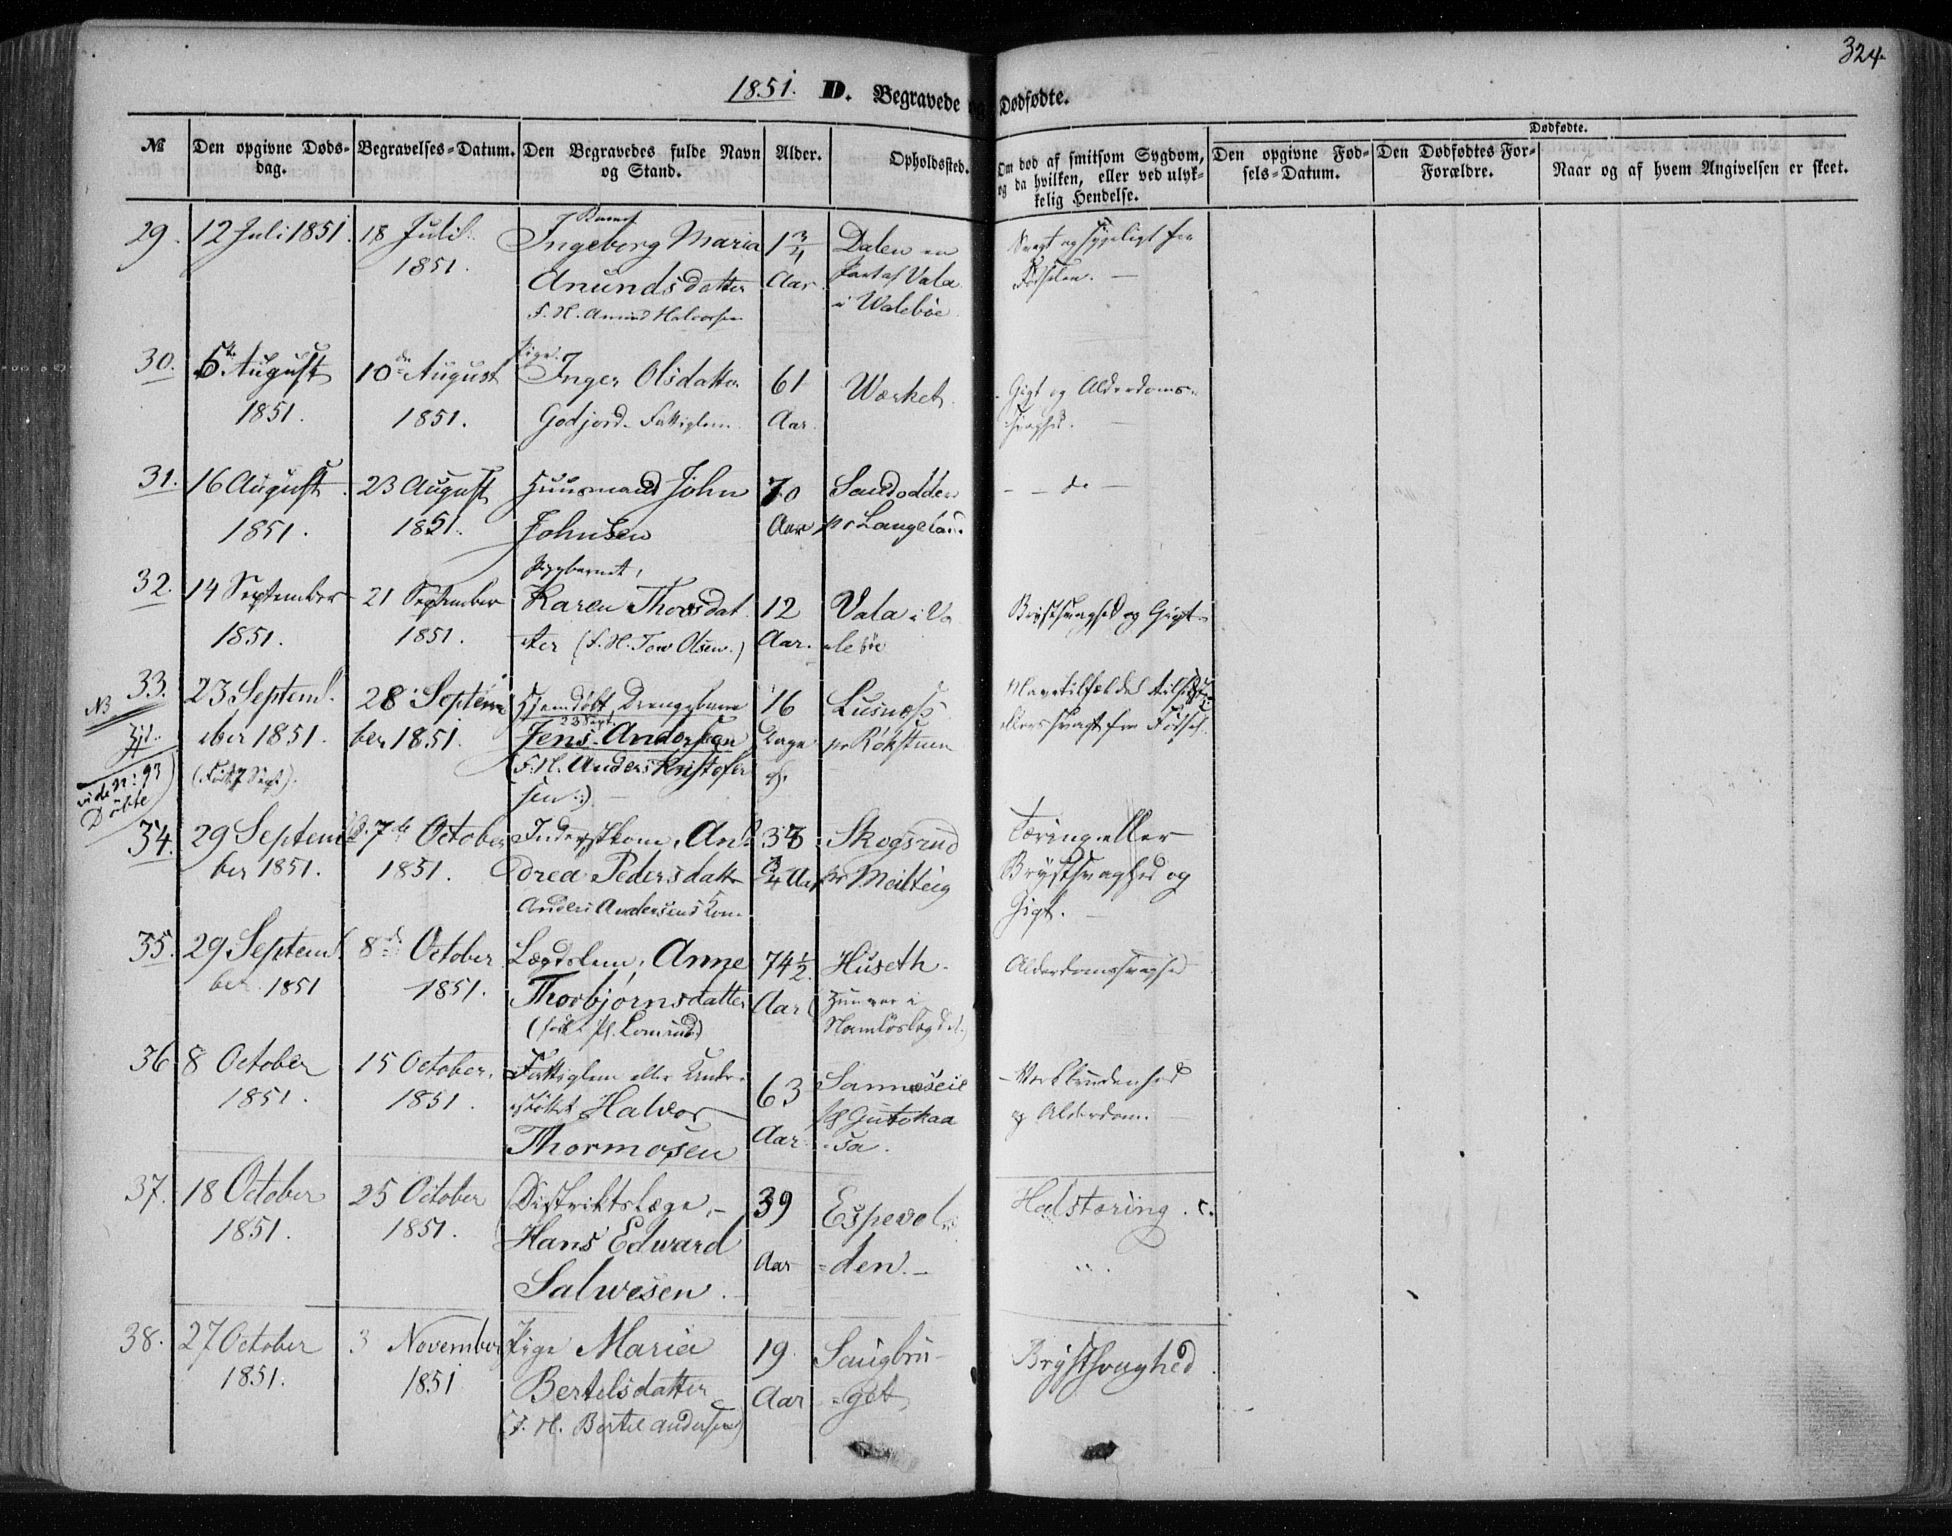 324
1851. D. Begravede og Dødfødte.
№
Den opgivne Døds-
dag.
Begravelses-Datum.
Den Begravedes fulde Navn
og Stand.
Alder.
Opholdssted.
Om død af smitsom Sygdom,
og da hvilken, eller ved ulyk-
kelig Hendelse.
Dødfødte.
Den opgivne Fød-
sels-Datum.
Den Dødfødtes For-
Forældre.
Naar og af hvem Angivelsen er skeet.
29. 12 Juli 1851. 18 Juli
1851.
Barnet
Ingeborg Maria
Anundsdatter
F. H. Anund Halvorsen
1 3/4
Aar.
Dalen en
Part af Vala
i Valebøe.
Svagt og sygeligt fra
Fødselen. —
30. 5te August
1851.
10de August
1851.
Pige.
Inger Olsdatter
Godjord. Fattiglem.
61
Aar.
Værket.
Gigt og Alderdoms-
svaghed. —
31. 16 August
1851.
23 August
1851.
Huusmand John
Johnsen
70
Aar
Sandodden
pr Langeland.
— — do —
32. 14 September
1851.
21 September
1851.
Pigebarnet,
Karen Thorsdat
ter (F. H. Tow Olsen.)
12
Aar.
Vala i Va
lebøe
Brystsvaghed og Gigt.
NB
vide N: 93
Døbte
33. 23 Septem-
ber 1851.
(Født 7 Sept).
28 Septem
ber 1851.
Hjemdøbt Drengebarn
23 Sept.
Jens Andersen
(F. H. Anders Kristofer
sen.)
16
Dage
gl.
Lusnæss
pr Rökstuen
Mavetilfælde
ellers svagt fra Fødsel.
34. 29 Septem
ber 1851.
7de October
1851.
Inderstkone, An-
drea Pedersdatter
Anders Andersens Kone.
33
3/4 Aar
Skogsrud
pr Meilteig
Tæring eller
Brystsvaghed og
Gigt. —
35. 29 Septem-
ber 1851
8de October
1851.
Lægdslem, Anne
Thorbjørnsdatter
74 1/2
Aar
Huseth.
(Hun var i
Namløslægdet.)
Alderdomssvaghed
36 8 October
1851.
15 October.
1851.
Fattiglem eller Under-
støttet Halvor
Thormosen
63
Aar.
Sannæseie
sa.
— Værkbrudenhed
og Alderdom. —
37. 18 October
1851.
25 October
1851.
Distriktslæge, —
Hans Edward
Salwesen.
39
Aar
Espevol-
den. —
Halstæring.
38. 27 October
1851.
3 November
1851
Pige Maria
Bertelsdatter
(F. H. Bertel Andersen)
19.
Aar
Saugbru-
get
Brystsvaghed.